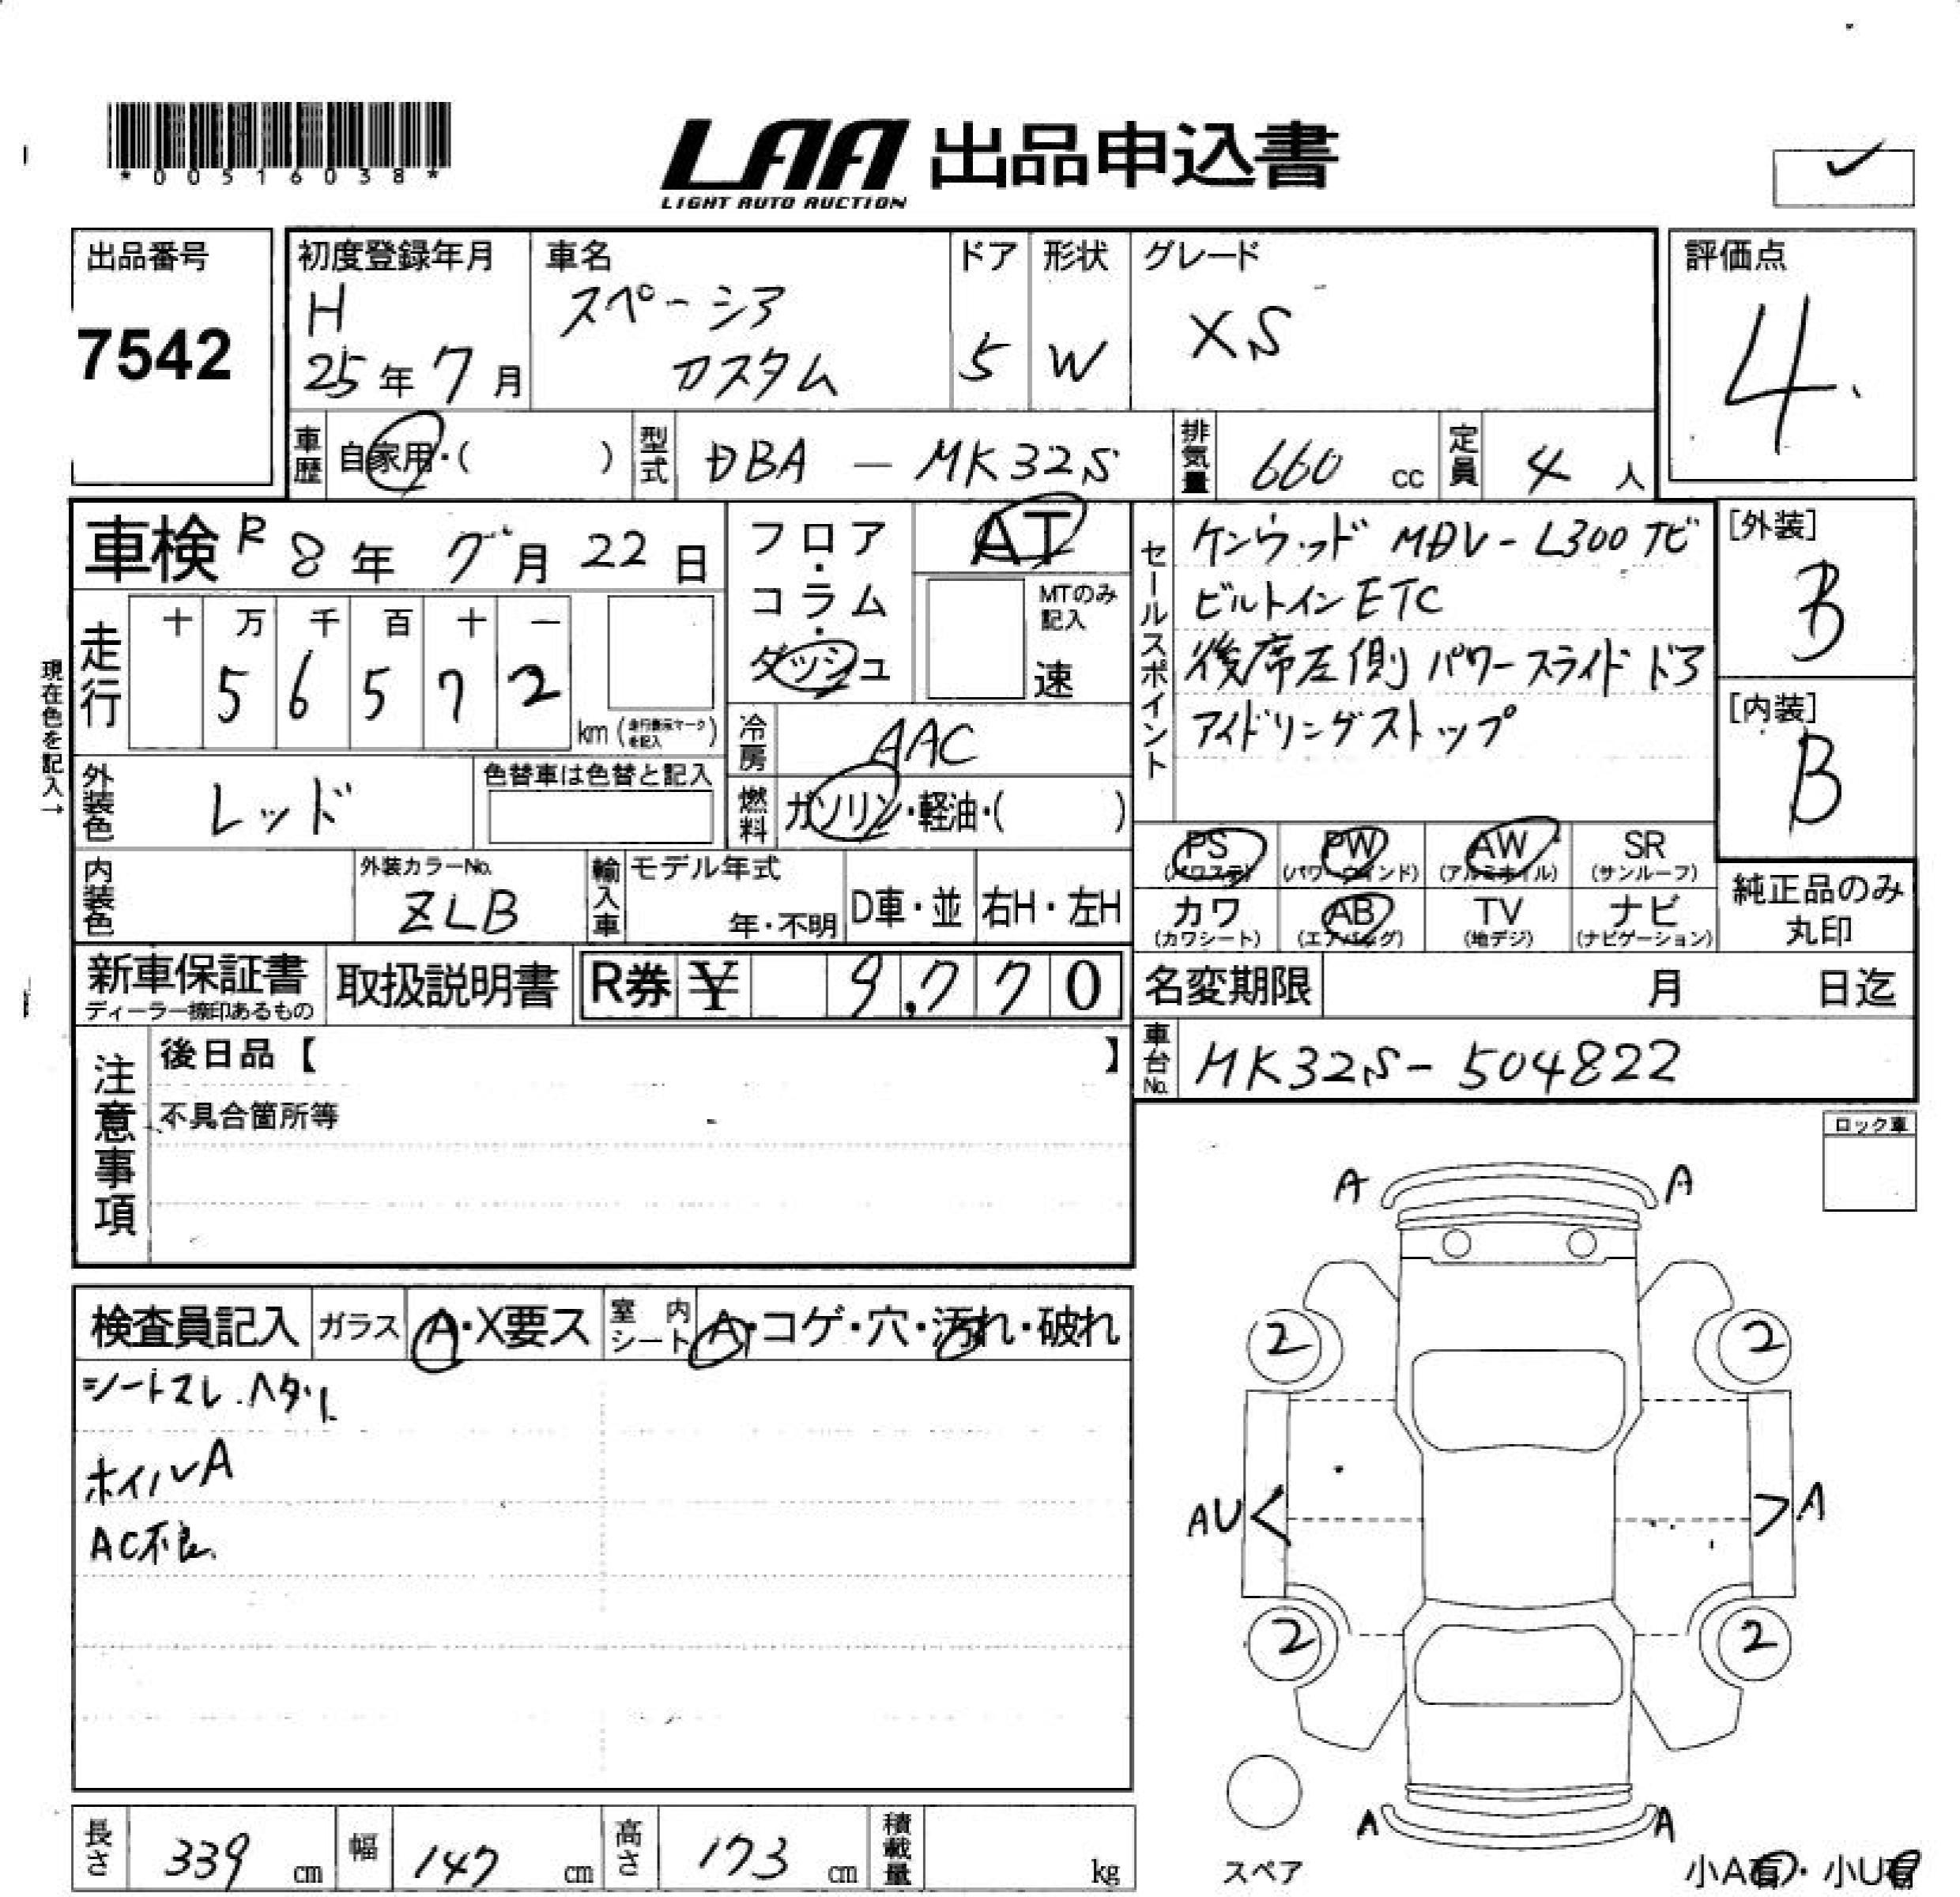 *00516038*
LAA 出品申込書
LIGHT AUTO AUCTION
出品番号
7542
初度登録年月
H
25年 7月
車名
スペーシア
カスタム
ドア
5
形状
W
グレード
XS
評価点
4
車歴 自家用・( )
型式 DBA - MK32S
排気量 660 cc
定員 4 人
車検 R 8年 7月 22日
フロア・コラム・ダッシュ
AT
MTのみ記入
速
セールスポイント
ケンウッド MDV-L300 ナビ
ビルトインETC
後席左側 パワースライドドア
アイドリングストップ
[外装]
B
[内装]
B
現在色を記入→
走行
十 万 千 百 十 一
5 6 5 7 2
km (走行表示マークを記入)
冷房 AAC
外装色 レッド
色替車は色替と記入
燃料 ガソリン・軽油・( )
PS (パワステ)
PW (パワーウインド)
AW (アルミホイル)
SR (サンルーフ)
内装色
外装カラーNo.
ZLB
輸入車
モデル年式
年・不明
D車・並
右H・左H
カワ (カワシート)
AB (エアバッグ)
TV (地デジ)
ナビ (ナビゲーション)
純正品のみ
丸印
新車保証書
ディーラー捺印あるもの
取扱説明書
R券 ¥ 9,770
名変期限 月 日迄
注意事項
後日品【 】
不具合箇所等
車台No. MK32S-504822
ロック車
A A
検査員記入
ガラス A・X要ス
室内シート A・コゲ・穴・汚れ・破れ
シートスレ.ヘタリ
ホイルA
AC不良
2 2
AU< >A
2 2
A A
スペア
小A有・小U有
長さ 339 cm
幅 147 cm
高さ 173 cm
積載量 kg